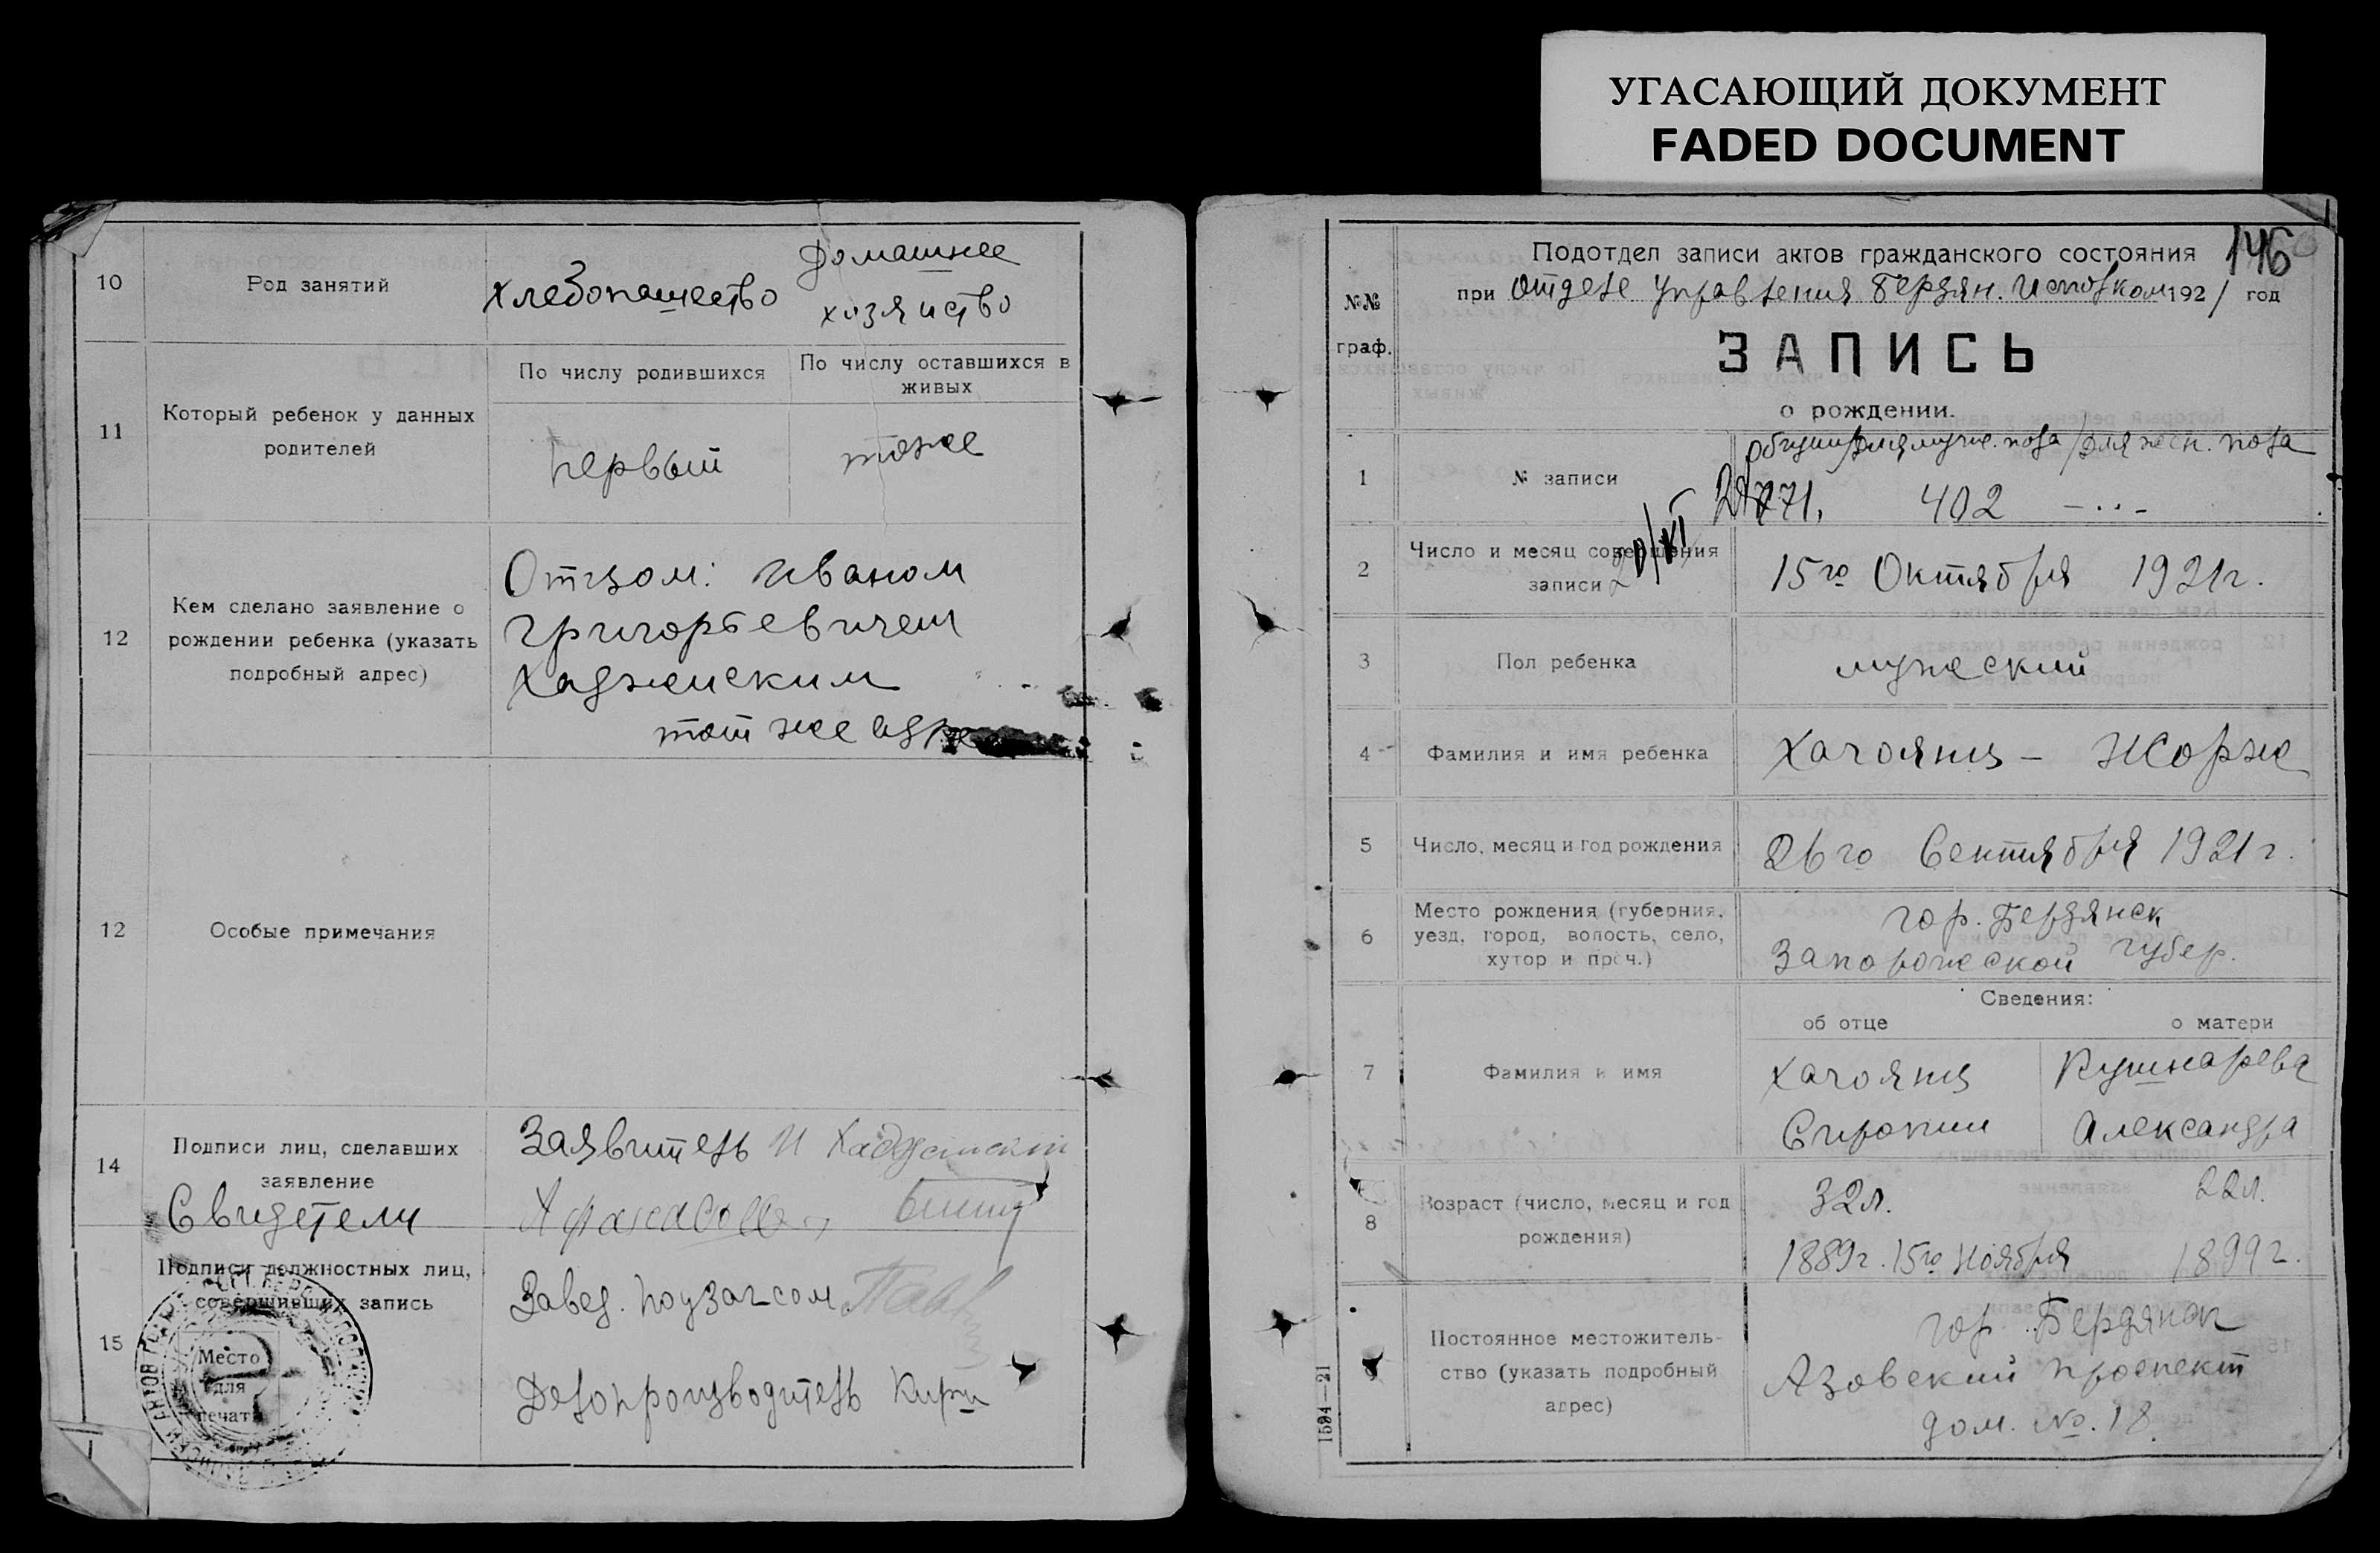 УГАСАЮЩИЙ ДОКУМЕНТ
FADED DOCUMENT
10
Род занятий
хлебопашество
Домашнее
хозяиство
11
Который ребенок у данных
родителей
По числу родившихся
По числу оставшихся в
живых
первый
тоже
12
Кем сделано заявление о
рождении ребенка (указать
подробный адрес)
Отцом: Иваном
Григорьевичем
Хаджейским
тот же адре
12
Особые примечания
14
Подписи лиц, сделавших
заявление
Свидетели
Заявитель И
15
Подписи должностных лиц,
совершивших запись
Место
для
печати
Завед. подзагсом
Делопроизводитель
№№
граф.
Подотдел записи актов гражданского состояния
146
при отделе Управления Бердян. Исполком 1921 год
ЗАПИСЬ
о рождении.
1
№ записи
общий/для муже. пола/для жен. пола
771. 402 – ... -
20/XI
2
Число и месяц совершения
записи
15го Октября 1921г.
3
Пол ребенка
мужеский
4
Фамилия и имя ребенка
Хачоянц – Жорж
5
Число, месяц и год рождения
26го Сентября 1921г.
6
Место рождения (губерния,
уезд, город, волость, село,
хутор и проч.)
гор. Бердянск
Запорожеской губер.
Сведения:
об отце
о матери
7
Фамилия и имя
Хачоянц
Кушнарева
Александра
8
Возраст (число, месяц и год
рождения)
32л.
22л.
1889г. 15го Ноября
1899г.
9
Постоянное местожитель-
ство (указать подробный
адрес)
гор. Бердянск
Азовский проспект
дом. № 18.
1594—21